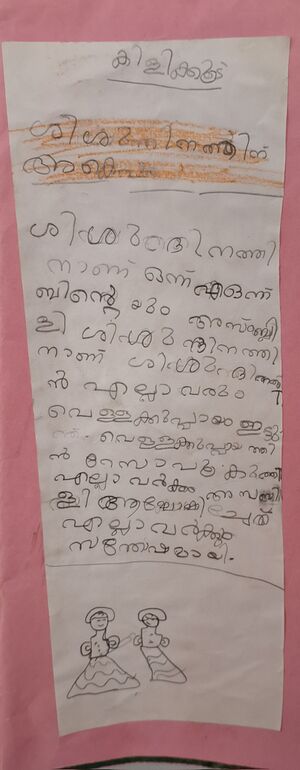 കിളിക്കൂട്
ശിശുദിനത്തിന്
ശിശുദിനത്തി
നാണ് ഒന്ന് എ ഒന്ന്
ബിന്റെ യും അസംബ്ലി
ളി ശിശുദിനത്തി
നാണ് ശിശുദിനത്തി
ൻ എല്ലാവരും
വെള്ളക്കുപ്പായം ഇട്ടു
വെള്ളക്കുപ്പായത്തി
ൻ റോസാപൂ കുത്തി
എല്ലാവർക്കും അസബ്ലി
എല്ലാവർക്കും
സന്തോഷമായി.